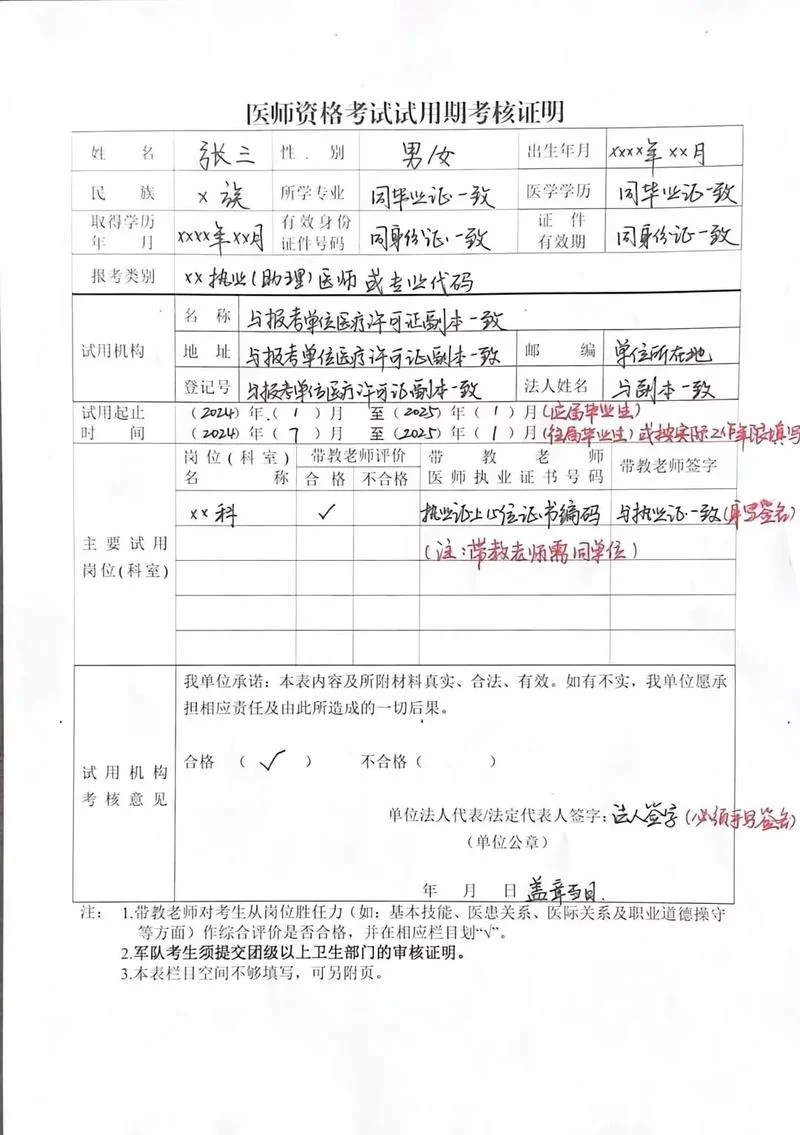 医师资格考试试用期考核证明
姓 名 张三 性 别 男/女 出生年月 xxxx年xx月
民 族 x族 所学专业 同毕业证一致 医学学历 同毕业证一致
取得学历年 月 xxxx年xx月 有效身份证件号码 同身份证一致 证 件有效期 同身份证一致
报考类别 xx执业(助理)医师或专业代码
试用机构 名 称 与报考单位医疗许可证副本一致
地 址 与报考单位医疗许可证副本一致 邮 编 单位所在地
登记号 与报考单位医疗许可证副本一致 法人姓名 与副本一致
试用起止时 间 (2024)年(1)月 至(2025)年(1)月(应届毕业生)
(2024)年(7)月 至(2025)年(1)月(往届毕业生)或按实际工作年限填写
主要试用岗位(科室) 岗位(科室)名 称 带教老师评价 合格 不合格 带教老师医师执业证书号码 带教老师签字
xx科 ✓ 执业证上15位证书编码 与执业证一致(手写签名)
(注:带教老师需同单位)
试用机构考核意见
我单位承诺:本表内容及所附材料真实、合法、有效。如有不实,我单位愿承
担相应责任及由此所造成的一切后果。
合格 (✓) 不合格( )
单位法人代表/法定代表人签字:法人签字(必须手写签名)
(单位公章)
年 月 日 盖章当日.
注: 1.带教老师对考生从岗位胜任力(如:基本技能、医患关系、医际关系及职业道德操守
等方面)作综合评价是否合格,并在相应栏目划“√”。
2.军队考生须提交团级以上卫生部门的审核证明。
3.本表栏目空间不够填写,可另附页。